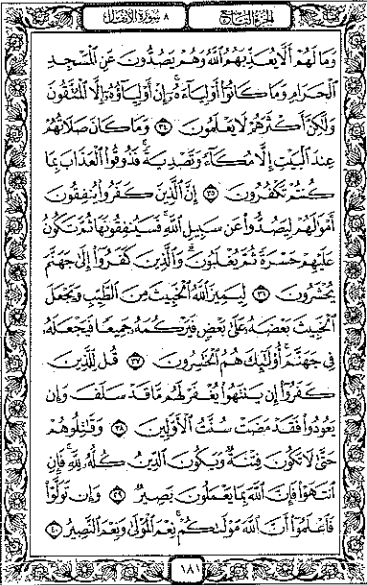 الجزء التاسع
٨ سورة الأنفال
وَمَا لَهُمْ أَلَّا يُعَذِّبَهُمُ ٱللَّهُ وَهُمْ يَصُدُّونَ عَنِ ٱلْمَسْجِدِ
ٱلْحَرَامِ وَمَا كَانُوٓا۟ أَوْلِيَآءَهُۥٓ إِنْ أَوْلِيَآؤُهُۥٓ إِلَّا ٱلْمُتَّقُونَ
وَلَٰكِنَّ أَكْثَرَهُمْ لَا يَعْلَمُونَ ٣٤ وَمَا كَانَ صَلَاتُهُمْ
عِندَ ٱلْبَيْتِ إِلَّا مُكَآءً وَتَصْدِيَةً ۚ فَذُوقُوا۟ ٱلْعَذَابَ بِمَا
كُنتُمْ تَكْفُرُونَ ٣٥ إِنَّ ٱلَّذِينَ كَفَرُوا۟ يُنفِقُونَ
أَمْوَٰلَهُمْ لِيَصُدُّوا۟ عَن سَبِيلِ ٱللَّهِ ۚ فَسَيُنفِقُونَهَا ثُمَّ تَكُونُ
عَلَيْهِمْ حَسْرَةً ثُمَّ يُغْلَبُونَ ۗ وَٱلَّذِينَ كَفَرُوٓا۟ إِلَىٰ جَهَنَّمَ
يُحْشَرُونَ ٣٦ لِيَمِيزَ ٱللَّهُ ٱلْخَبِيثَ مِنَ ٱلطَّيِّبِ وَيَجْعَلَ
ٱلْخَبِيثَ بَعْضَهُۥ عَلَىٰ بَعْضٍ فَيَرْكُمَهُۥ جَمِيعًا فَيَجْعَلَهُۥ
فِى جَهَنَّمَ ۚ أُو۟لَٰٓئِكَ هُمُ ٱلْخَٰسِرُونَ ٣٧ قُل لِّلَّذِينَ
كَفَرُوٓا۟ إِن يَنتَهُوا۟ يُغْفَرْ لَهُم مَّا قَدْ سَلَفَ وَإِن
يَعُودُوا۟ فَقَدْ مَضَتْ سُنَّتُ ٱلْأَوَّلِينَ ٣٨ وَقَٰتِلُوهُمْ
حَتَّىٰ لَا تَكُونَ فِتْنَةٌ وَيَكُونَ ٱلدِّينُ كُلُّهُۥ لِلَّهِ ۚ فَإِنِ
ٱنتَهَوْا۟ فَإِنَّ ٱللَّهَ بِمَا يَعْمَلُونَ بَصِيرٌ ٣٩ وَإِن تَوَلَّوْا۟
فَٱعْلَمُوٓا۟ أَنَّ ٱللَّهَ مَوْلَىٰكُمْ ۚ نِعْمَ ٱلْمَوْلَىٰ وَنِعْمَ ٱلنَّصِيرُ ٤٠
١٨١